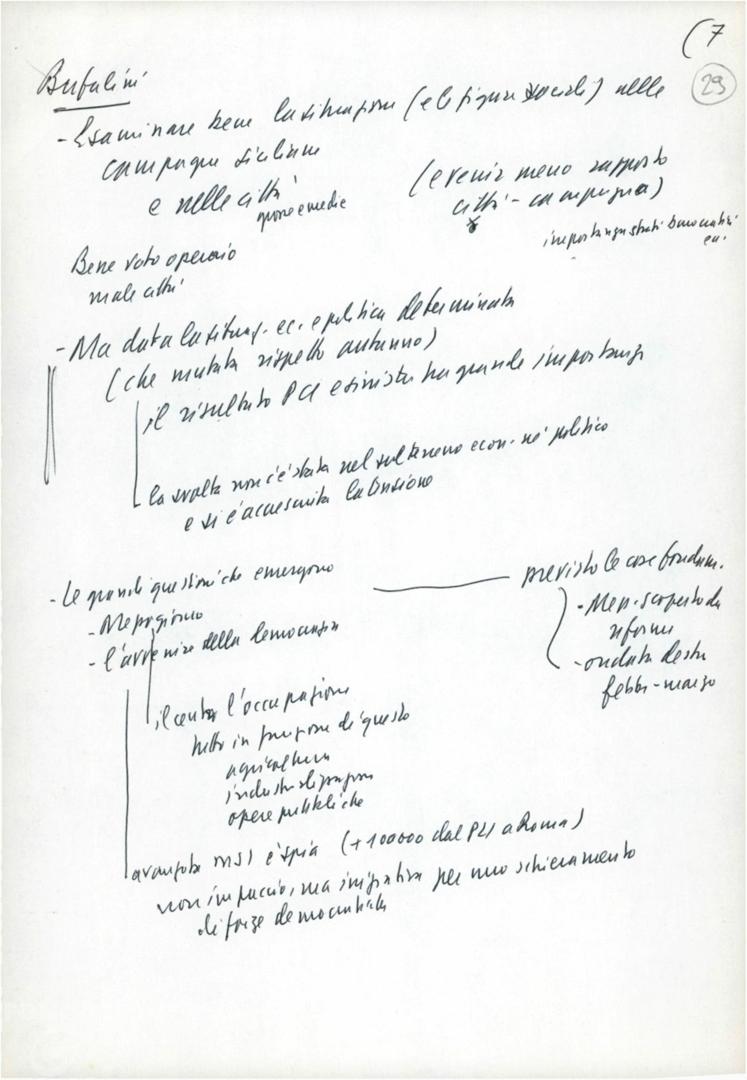 (7
29
Bufalini
- Esaminare bene la situazione (e le figure sociali) nelle
campagne siciliane
e nelle città
grosse e medie
(e venir meno rapporto
città - campagna)
importanza strati burocratici
ecc.
Bene voto operaio
male città
- Ma data la situaz. ec. e politica determinata
(che mutata rispetto autunno)
il risultato PCI e sinistra ha grande importanza
la svolta non c'è stata nel sul terreno econ. né politico
e si è accresciuta la tensione
- Le grandi questioni che emergono
- Mezzogiorno
- l'avvenire della democrazia
previsto le cose fondam.
- Mezz. scoperto da
riforme
- ondata destra
febbr-marzo
il centro l'occupazione
tutto in funzione di questo
agricoltura
industrializzazione
opere pubbliche
avanzata MSI è spia (+ 100000 dal PLI a Roma)
non impaccio, ma iniziativa per uno schieramento
di forze democratiche